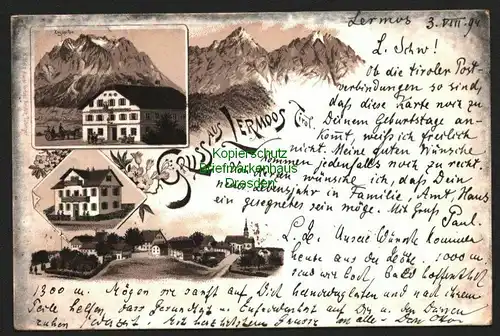 Lermos 3. VIII. 94
L. Schw!
Ob die tiroler Post-
verbindungen so sind,
daß diese Karte noch zu
Deinem Geburtstage an-
kommt, weiß ich freilich
nicht. Meine guten Wünsche
kommen jedenfalls noch zu recht.
wünsche ich, daß Dein
neues Lebensjahr in Familie, Amt, Haus
ein gesegnetes sein möge. Mit Gruß Paul.
Gruss aus Lermoos Tirol
Kopierschutz
Briefmarkenhaus
Dresden
L. G. Unsere Wünsche kommen
heute aus der 1000 m,
und wie hoch, bald hoffentlich
1300 m. Mögen sie sanft auf Dich und nach ihrem
Teile helfen, dass Gesundheit und Zufriedenheit auf Dir und den Deinen
ruhen Mit herzlichsten Grüssen an alle